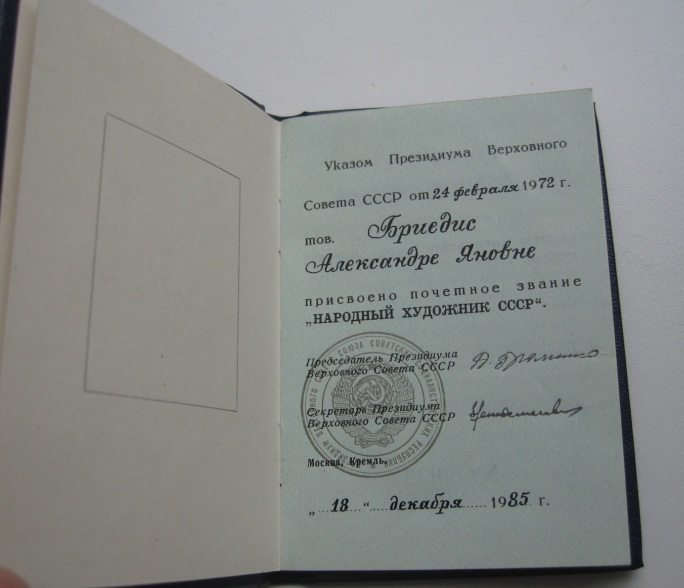 Указом Президиума Верховного
Совета СССР от 24 февраля 1972 г.
тов. Бриедис
Александре Яновне
присвоено почетное звание
„НАРОДНЫЙ ХУДОЖНИК СССР“.
Председатель Президиума
Верховного Совета СССР
А. Громыко
Секретарь Президиума
Верховного Совета СССР
Москва, Кремль,
„ 18 “ декабря 1985 г.